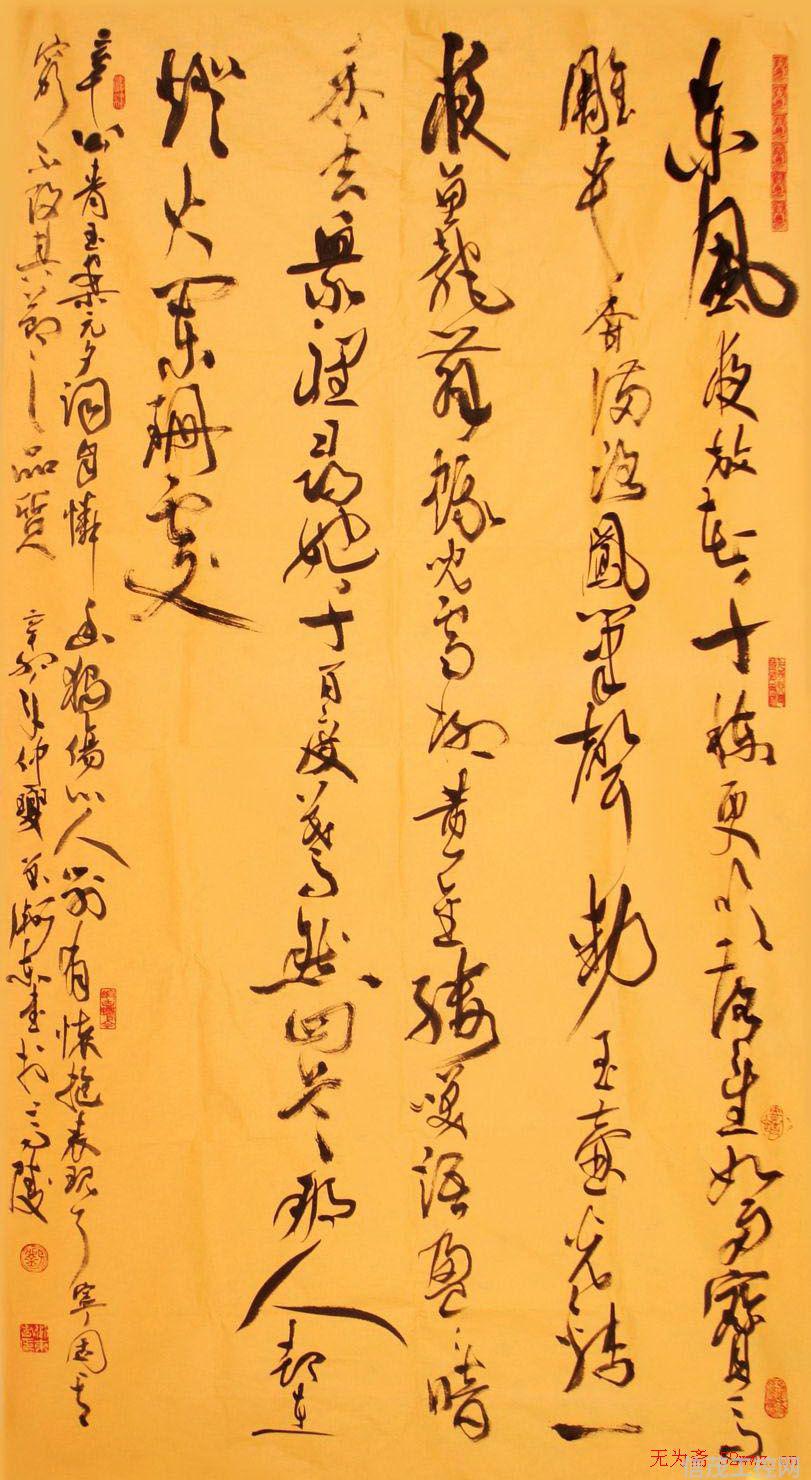 东风夜放花千树更吹落星如雨宝马
雕车香满路凤箫声动玉壶光转一
夜鱼龙舞蛾儿雪柳黄金缕笑语盈盈暗
香去众里寻她千百度蓦然回首那人却在
灯火阑珊处
辛公青玉案元夕词自怜幽独伤心人别有怀抱表现了宁固
穷不改其节之品质 辛卯年仲夏 东书于高陵
无为斋